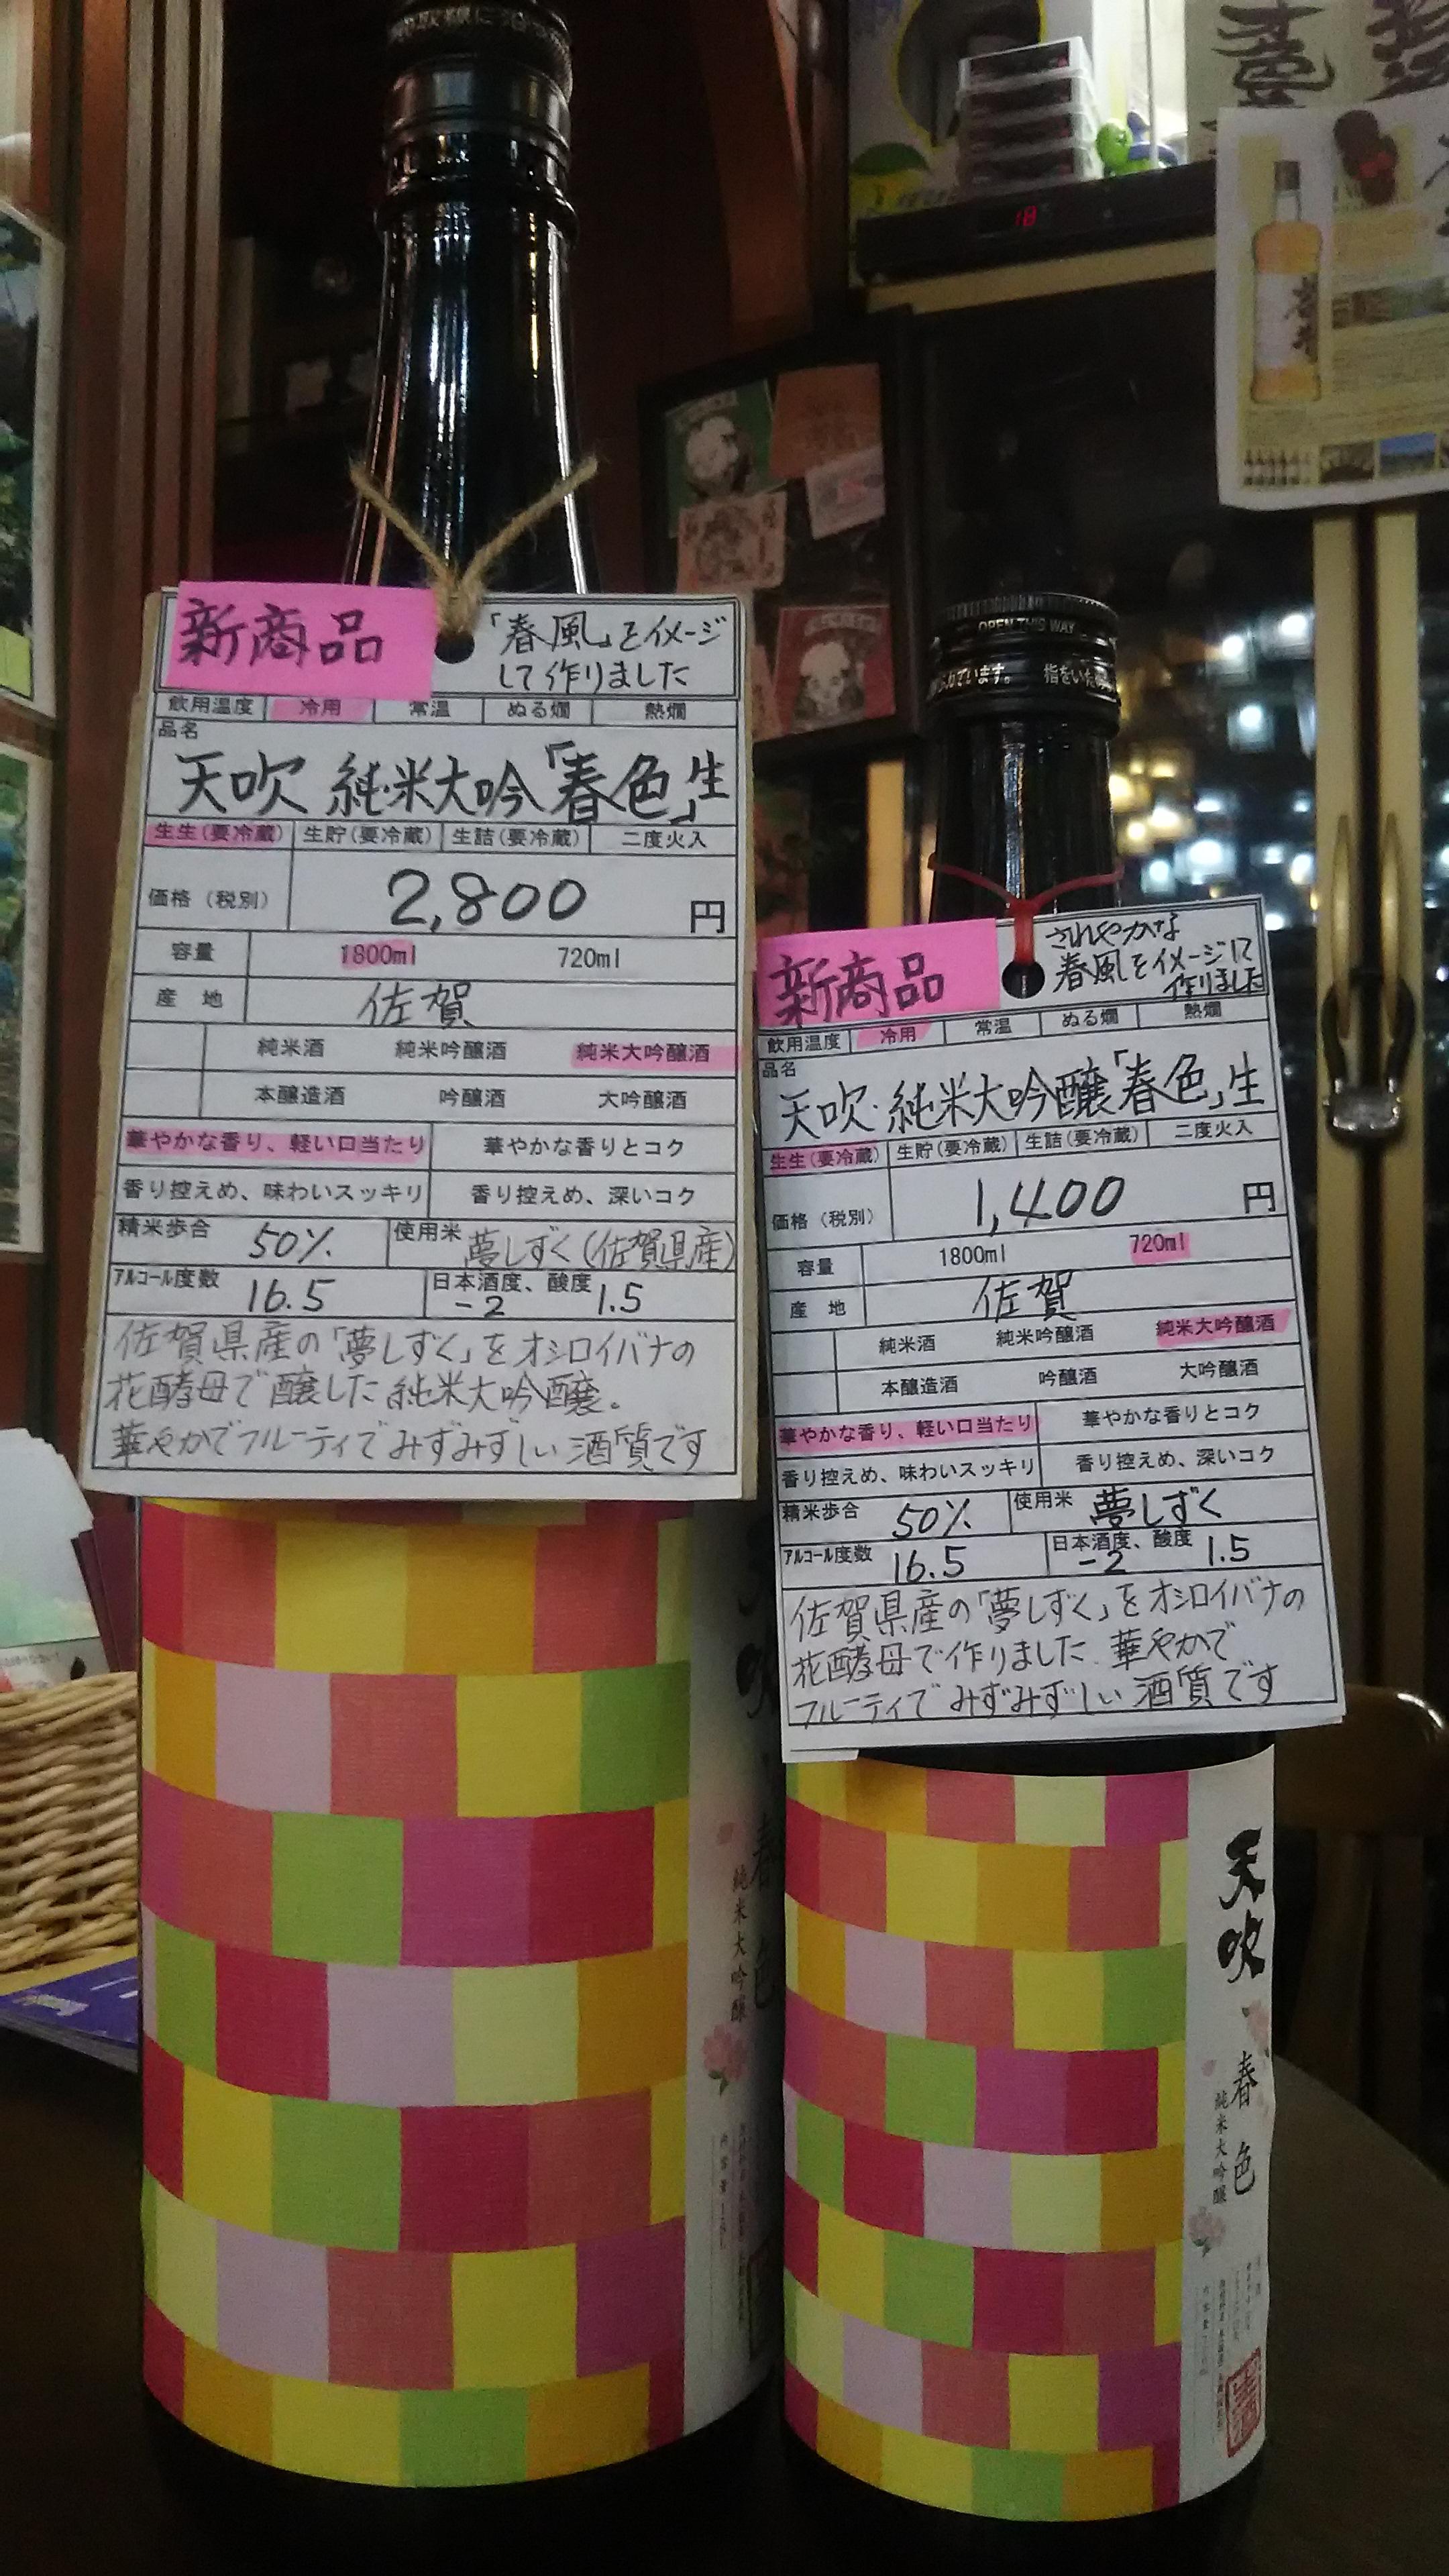 新商品
「春風」をイメージ
して作りました
飲用温度 冷用 常温 ぬる燗 熱燗
品名
天吹 純米大吟「春色」生
生生(要冷蔵) 生貯(要冷蔵) 生詰(要冷蔵) 二度火入
価格(税別) 2,800 円
容量 1800ml 720ml
産地 佐賀
純米酒 純米吟醸酒 純米大吟醸酒
本醸造酒 吟醸酒 大吟醸酒
華やかな香り、軽い口当たり 華やかな香りとコク
香り控えめ、味わいスッキリ 香り控えめ、深いコク
精米歩合 50% 使用米 夢しずく(佐賀県産)
アルコール度数 16.5 日本酒度、酸度 -2 1.5
佐賀県産の「夢しずく」をオシロイバナの
花酵母で醸した純米大吟醸。
華やかでフルーティでみずみずしい酒質です
OPEN THIS WAY
指をいた
新商品
されやかな
春風をイメージして
作りました
飲用温度 冷用 常温 ぬる燗 熱燗
品名
天吹・純米大吟醸「春色」生
生生(要冷蔵) 生貯(要冷蔵) 生詰(要冷蔵) 二度火入
価格(税別) 1,400 円
容量 1800ml 720ml
産地 佐賀
純米酒 純米吟醸酒 純米大吟醸酒
本醸造酒 吟醸酒 大吟醸酒
華やかな香り、軽い口当たり 華やかな香りとコク
香り控えめ、味わいスッキリ 香り控えめ、深いコク
精米歩合 50% 使用米 夢しずく
アルコール度数 16.5 日本酒度、酸度 -2 1.5
佐賀県産の「夢しずく」をオシロイバナの
花酵母で作りました 華やかで
フルーティでみずみずしい酒質です
春色
純米大吟醸
天吹
春色
純米大吟醸
18